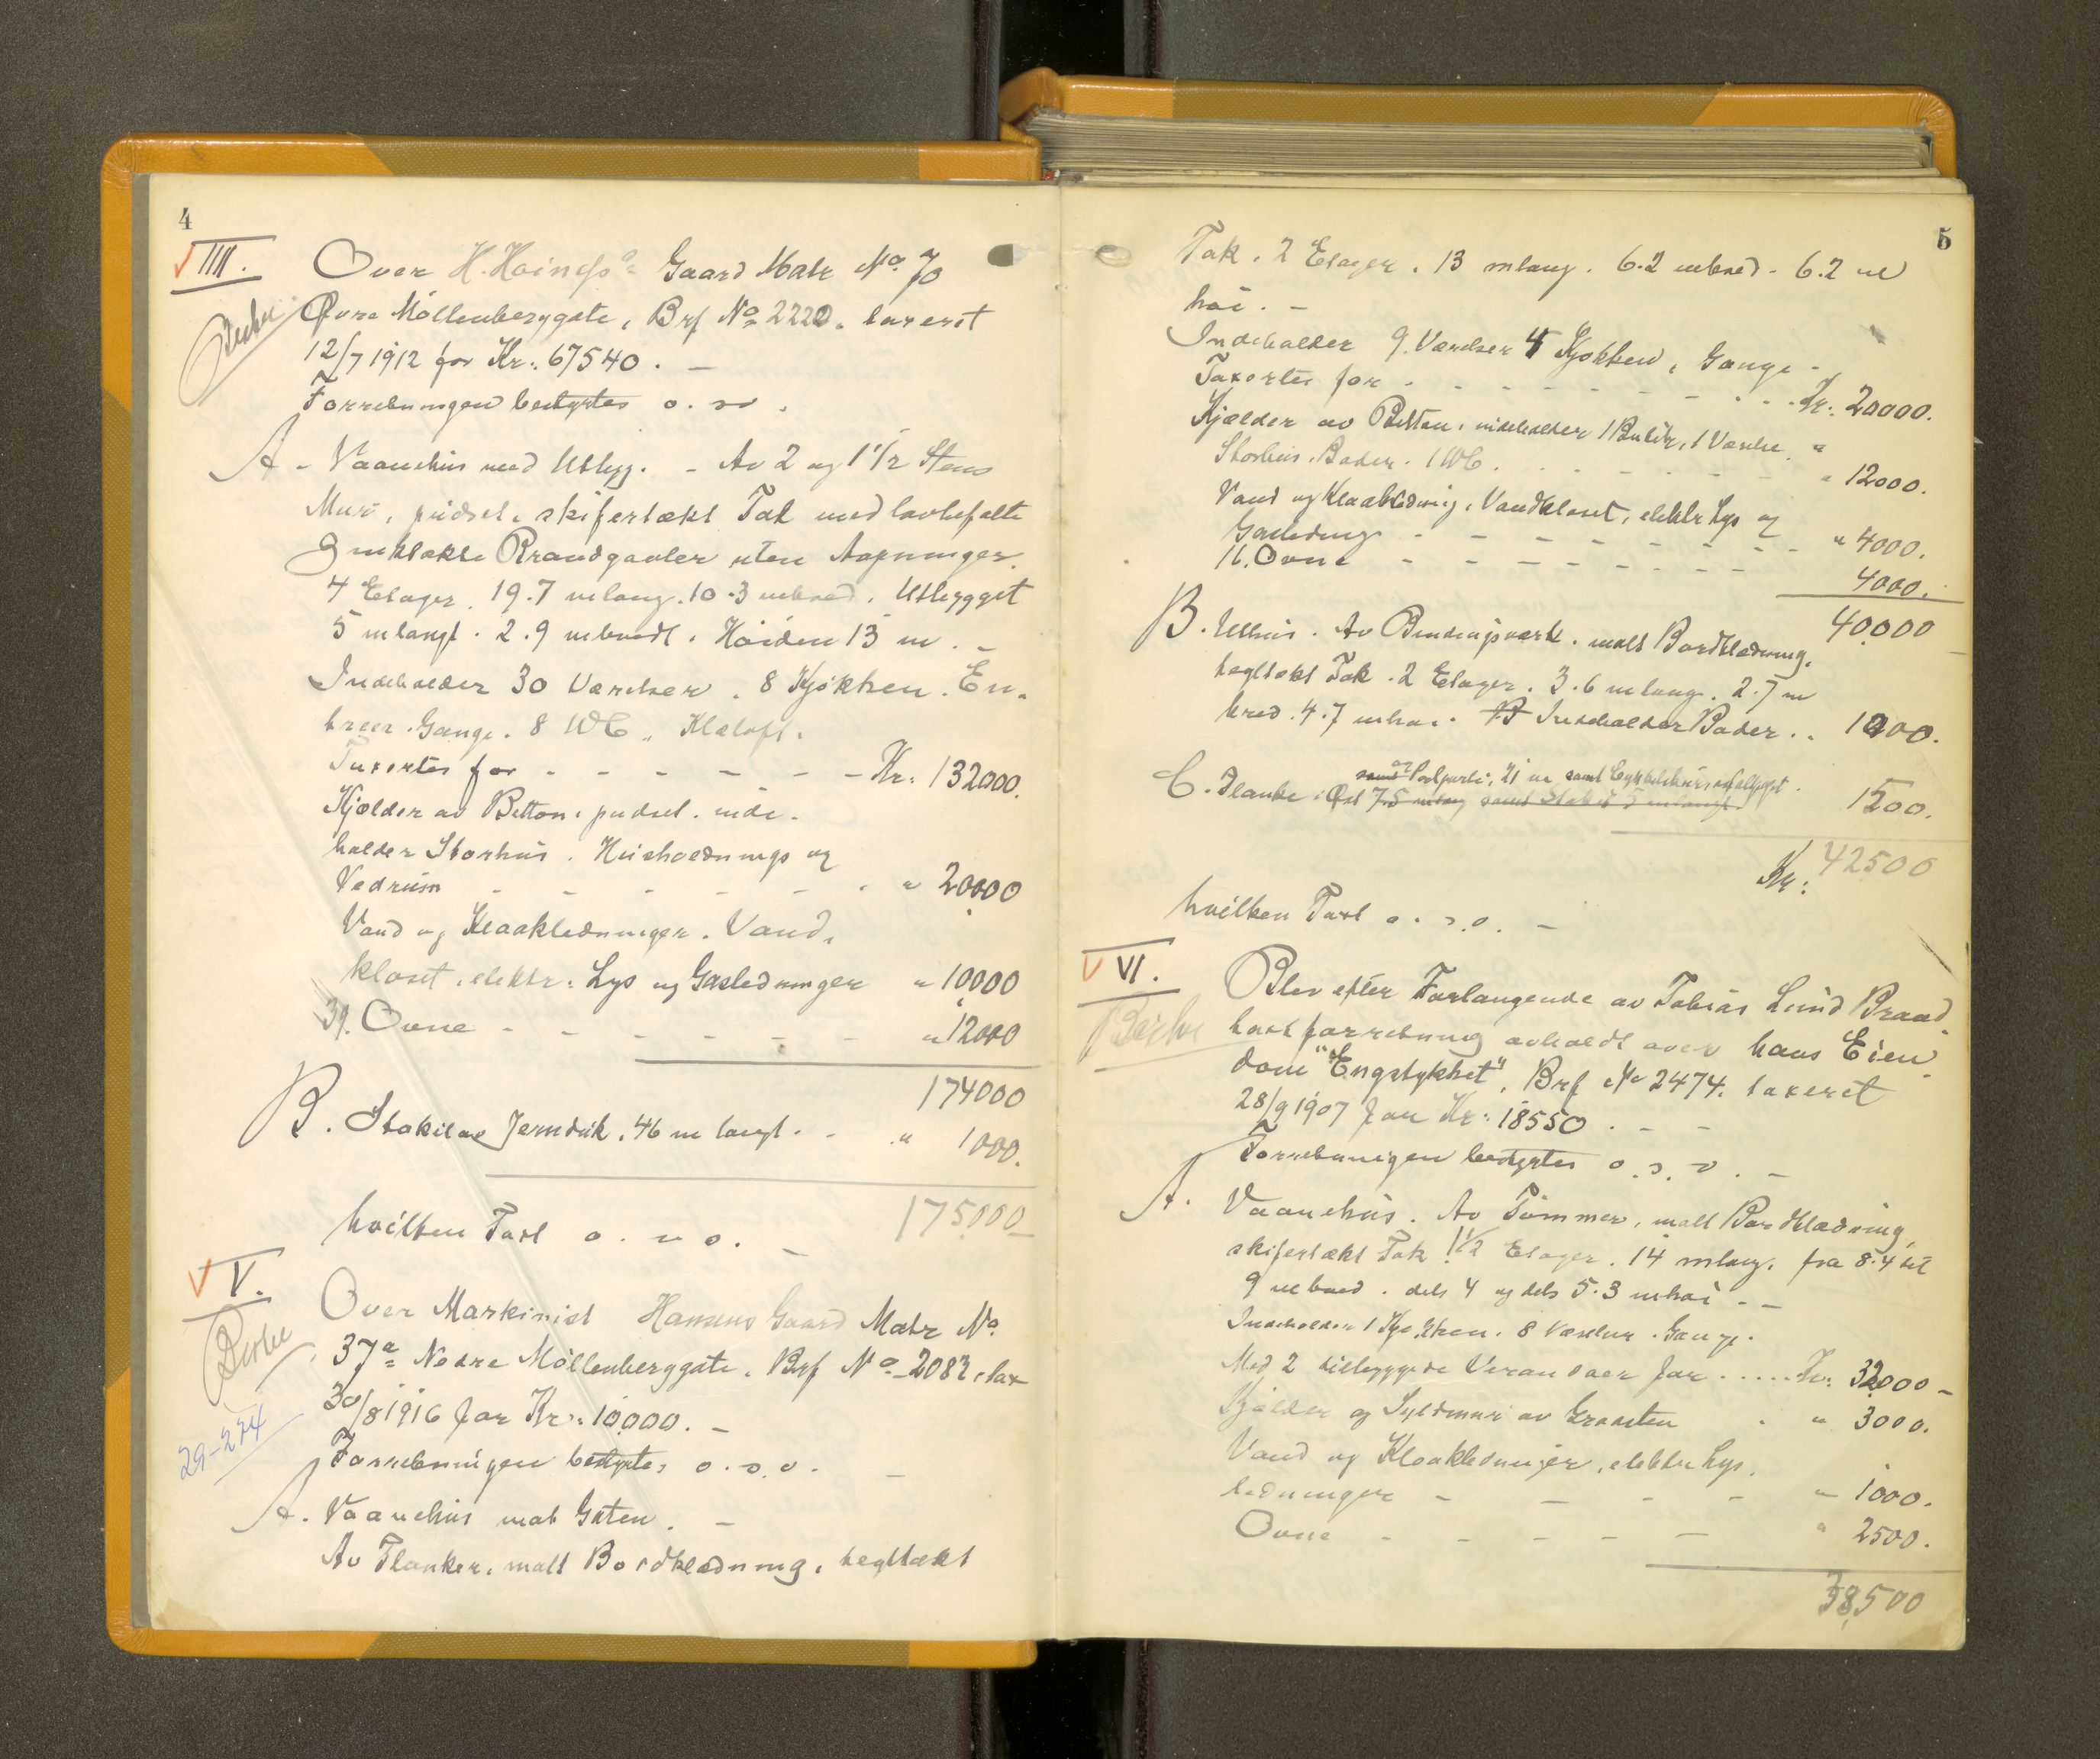 4
IIII.
Over H. Hoinæss Gaard Matr No 70
Øvre Möllenberggate, Brf No 2220. taxeret
12/7 1912 for Kr: 67540. –
Forretningen bestyrtes o. s. v.
A – Vaanehus med Utbygg. – Av 2 og 1 1/2 Stens
Mur, pudset, skifertækt Tak med lovbefalte
zinktækte Brandgavler uten Aapninger.
4 Etager. 19.7 m lang. 10.3 m bred. Utbygget
5 m langt. 2.9 m bredt. Høiden 13 m. –
Indeholder 30 Værelser. 8 Kjøkken. En-
treer. Gange. 8 WC, Klæloft.
Taxertes for – – – – – – Kr: 132000.
Kjælder av Betton, pudset, inde-
holder Storhus. Husholdnings og
Vedrum – – – – – " 20000
Vand og Kloakledninger. Vand-
kloset, elektr: Lys og Gasledninger " 10000
39. Ovne – – – – – " 12000
174000
B. Stakit av Jerndrik. 46 m langt. – " 1000.
175.000
hvilken Taxt o. s. v. –
V.
Over Maskinist Hansens Gaard Matr No
37a Nedre Möllenberggate. Brf No 2083, tax
30/8 1916 for Kr: 10.000. –
29-274
Forretningen bestyrtes o. s. v. –
A. Vaanehus mot Gaten. –
Av Planker, malt Bordklædning, tegltækt
5
Tak. 2 Etager. 13 m lang. 6.2 m bred – 6.2 m
høi. –
Indeholder 9. Værelser 4 Kjøkken, Gange –
Taxertes for – – – – – – – Kr: 20000.
Kjælder av Betton, indeholder 1 Butik, 1 Værelse "
Storhus. Boder. 1 WC. – – – – " 12000.
Vand og Kloakledning, Vandkloset, elektr Lys og
Gasledning – – – – – – – " 4000.
16. Ovne – – – – – – – 4000.
40.000
B. Uthus. Av Bindingsværk. malt Bordklædning,
tegltækt Tak. 2 Etager. 3.6 m lang. 2.7 m
bred. 4.7 m høi. Indeholder Boder.. 1000.
og Portparti, 21 m samt
C. Planke 1500.
Kr: 42500
hvilken Taxt o. s. v. –
VI.
Blev efter Forlangende av Tobias Lund Brand-
taxtforretning avholdt over hans Eien-
dom "Engstykket", Brf No 2474. taxeret
28/9 1907 for Kr: 18550. – –
Forretningen bestyrtes o. s. v. –
A. Vaanehus. Av Tømmer, malt Bordklædning,
skifertækt Tak 1 1/2 Etager. 14 m lang. fra 8.4 til
9 m bred. dels 4 og dels 5.3 m høi – –
Indeholder 1 Kjøkken. 8 Værelser. Gange.
Med 2 tilbyggede Verandaer for ..... Kr: 32000 –
Kjælder og Syldmur av Graasten . " 3000.
Vand og Kloakledninger, elektr Lys-
ledninger – – – – " 1000.
Ovne – – – – – " 2500.
38,500